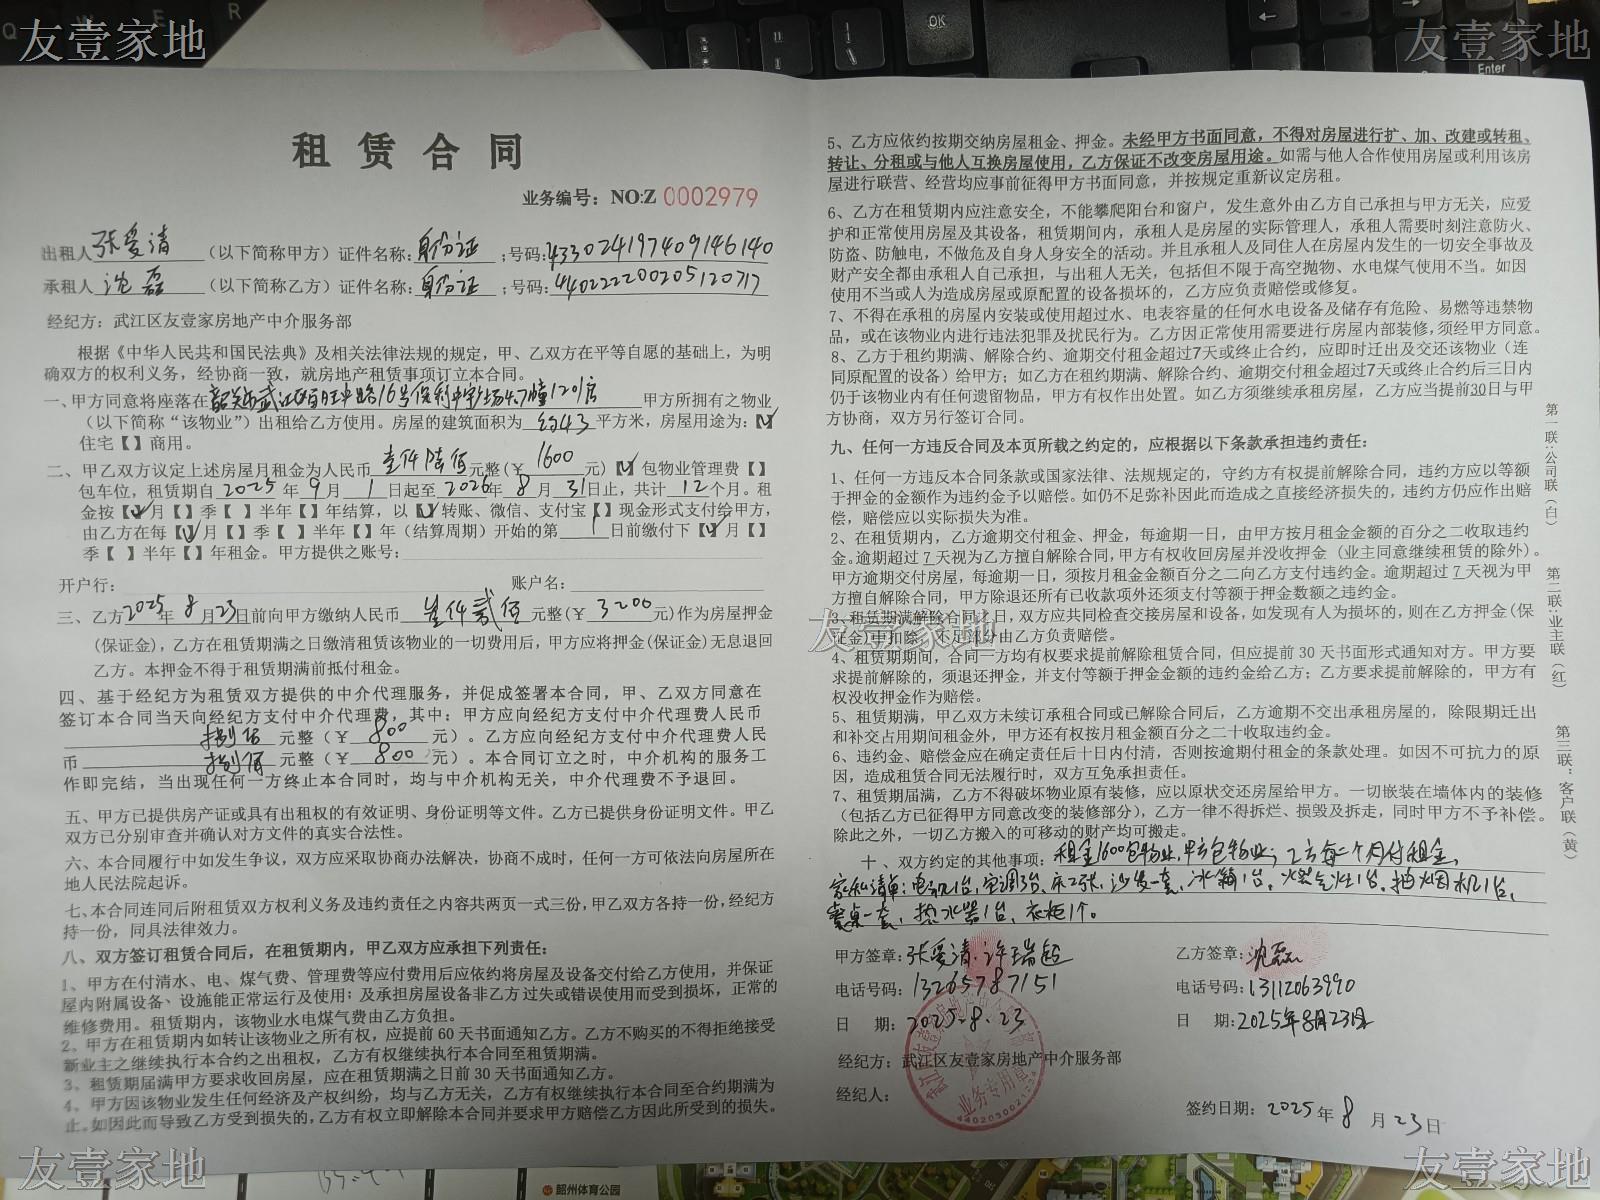 友壹家地
友壹家地
租赁合同
业务编号：NO:Z 0002979
出租人 张爱清 （以下简称甲方）证件名称：身份证；号码：433024197409146140
承租人 沈磊 （以下简称乙方）证件名称：身份证；号码：440222200205120717
经纪方：武江区友壹家房地产中介服务部
根据《中华人民共和国民法典》及相关法律法规的规定，甲、乙双方在平等自愿的基础上，为明
确双方的权利义务，经协商一致，就房地产租赁事项订立本合同。
一、甲方同意将座落在韶关市武江区百旺中路16号保利中宇广场4,7幢1201房 甲方所拥有之物业
（以下简称“该物业”）出租给乙方使用。房屋的建筑面积为 约43 平方米，房屋用途为：【√】
住宅【 】商用。
二、甲乙双方议定上述房屋月租金为人民币 壹仟陆佰 元整(￥ 1600 元)【√】包物业管理费【 】
包车位，租赁期自 2025 年 9 月 1 日起至 2026 年 8 月 31 日止，共计 12 个月。租
金按【√】月【 】季【 】半年【 】年结算，以【√】转账、微信、支付宝【 】现金形式支付给甲方，
由乙方在每【√】月【 】季【 】半年【 】年（结算周期）开始的第 1 日前缴付下【√】月【 】
季【 】半年【 】年租金。甲方提供之账号：
开户行： 账户名：
三、乙方 2025 年 8 月 23 日前向甲方缴纳人民币 叁仟贰佰 元整(￥ 3200 元)作为房屋押金
(保证金)，乙方在租赁期满之日缴清租赁该物业的一切费用后，甲方应将押金(保证金)无息退回
乙方。本押金不得于租赁期满前抵付租金。
四、基于经纪方为租赁双方提供的中介代理服务，并促成签署本合同，甲、乙双方同意在
签订本合同当天向经纪方支付中介代理费，其中：甲方应向经纪方支付中介代理费人民币
捌佰 元整（￥ 800 元）。乙方应向经纪方支付中介代理费人民
币 捌佰 元整（￥ 800 元）。本合同订立之时，中介机构的服务工
作即完结，当出现任何一方终止本合同时，均与中介机构无关，中介代理费不予退回。
五、甲方已提供房产证或具有出租权的有效证明、身份证明等文件。乙方已提供身份证明文件。甲乙
双方已分别审查并确认对方文件的真实合法性。
六、本合同履行中如发生争议，双方应采取协商办法解决，协商不成时，任何一方可依法向房屋所在
地人民法院起诉。
七、本合同连同后附租赁双方权利义务及违约责任之内容共两页一式三份，甲乙双方各持一份，经纪方
持一份，同具法律效力。
八、双方签订租赁合同后，在租赁期内，甲乙双方应承担下列责任：
1、甲方在付清水、电、煤气费、管理费等应付费用后应依约将房屋及设备交付给乙方使用，并保证
屋内附属设备、设施能正常运行及使用；及承担房屋设备非乙方过失或错误使用而受到损坏，正常的
维修费用。租赁期内，该物业水电煤气费由乙方负担。
2、甲方在租赁期内如转让该物业之所有权，应提前60天书面通知乙方。乙方不购买的不得拒绝接受
新业主之继续执行本合约之出租权，乙方有权继续执行本合同至租赁期满。
3、租赁期届满甲方要求收回房屋，应在租赁期满之日前30天书面通知乙方。
4、甲方因该物业发生任何经济及产权纠纷，均与乙方无关，乙方有权继续执行本合同至合约期满为
止。如因此而导致乙方受到损失的，乙方有权立即解除本合同并要求甲方赔偿乙方因此所受到的损失。
5、乙方应依约按期交纳房屋租金、押金。未经甲方书面同意，不得对房屋进行扩、加、改建或转租、
转让、分租或与他人互换房屋使用，乙方保证不改变房屋用途。如需与他人合作使用房屋或利用该房
屋进行联营、经营均应事前征得甲方书面同意，并按规定重新议定房租。
6、乙方在租赁期内应注意安全，不能攀爬阳台和窗户，发生意外由乙方自己承担与甲方无关，应爱
护和正常使用房屋及其设备，租赁期间内，承租人是房屋的实际管理人，承租人需要时刻注意防火、
防盗、防触电，不做危及自身人身安全的活动。并且承租人及同住人在房屋内发生的一切安全事故及
财产安全都由承租人自己承担，与出租人无关，包括但不限于高空抛物、水电煤气使用不当。如因
使用不当或人为造成房屋或原配置的设备损坏的，乙方应负责赔偿或修复。
7、不得在承租的房屋内安装或使用超过水、电表容量的任何水电设备及储存有危险、易燃等违禁物
品，或在该物业内进行违法犯罪及扰民行为。乙方因正常使用需要进行房屋内部装修，须经甲方同意。
8、乙方于租约期满、解除合约、逾期交付租金超过7天或终止合约，应即时迁出及交还该物业（连
同原配置的设备）给甲方；如乙方在租约期满、解除合约、逾期交付租金超过7天或终止合约后三日内
仍于该物业内有任何遗留物品，甲方有权作出处置。如乙方须继续承租房屋，乙方应当提前30日与甲
方协商，双方另行签订合同。
九、任何一方违反合同及本页所载之约定的，应根据以下条款承担违约责任：
1、任何一方违反本合同条款或国家法律、法规规定的，守约方有权提前解除合同，违约方应以等额
于押金的金额作为违约金予以赔偿。如仍不足弥补因此而造成之直接经济损失的，违约方仍应作出赔
偿，赔偿应以实际损失为准。
2、在租赁期内，乙方逾期交付租金、押金，每逾期一日，由甲方按月租金金额的百分之二收取违约
金。逾期超过 7 天视为乙方擅自解除合同，甲方有权收回房屋并没收押金（业主同意继续租赁的除外）。
甲方逾期交付房屋，每逾期一日，须按月租金金额百分之二向乙方支付违约金。逾期超过 7 天视为甲
方擅自解除合同，甲方除退还所有已收款项外还须支付等额于押金数额之违约金。
3、租赁期满解除合同之日，双方应共同检查交接房屋和设备，如发现有人为损坏的，则在乙方押金(保
证金)中扣除，不足部分由乙方负责赔偿。
友壹家地
4、租赁期期间，合同一方均有权要求提前解除租赁合同，但应提前30天书面形式通知对方。甲方要
求提前解除的，须退还押金，并支付等额于押金金额的违约金给乙方；乙方要求提前解除的，甲方有
权没收押金作为赔偿。
5、租赁期满，甲乙双方未续订承租合同或已解除合同后，乙方逾期不交出承租房屋的，除限期迁出
和补交占用期间租金外，甲方还有权按月租金额百分之二十收取违约金。
6、违约金、赔偿金应在确定责任后十日内付清，否则按逾期付租金的条款处理。如因不可抗力的原
因，造成租赁合同无法履行时，双方互免承担责任。
7、租赁期届满，乙方不得破坏物业原有装修，应以原状交还房屋给甲方。一切嵌装在墙体内的装修
（包括乙方已征得甲方同意改变的装修部分），乙方一律不得拆烂、损毁及拆走，同时甲方不予补偿。
除此之外，一切乙方搬入的可移动的财产均可搬走。
十、双方约定的其他事项：租金1600包物业，甲方包物业；乙方每一个月付租金。
家私清单：电视1台，空调3台，床2张，沙发一套，冰箱1台，燃气灶1台，抽烟机1台，
餐桌一套，热水器1台，衣柜1个。
甲方签章：张爱清.许瑞超 乙方签章：沈磊
电话号码：13265787151 电话号码：13112063990
日 期：2025-8.23 日 期：2025年8月23日
经纪方：武江区友壹家房地产中介服务部
经纪人：
业务专用章
签约日期：2025 年 8 月 23 日
第一联：公司联（白）
第二联：业主联（红）
第三联：客户联（黄）
OK
Enter
韶州体育公园
友壹家地
友壹家地